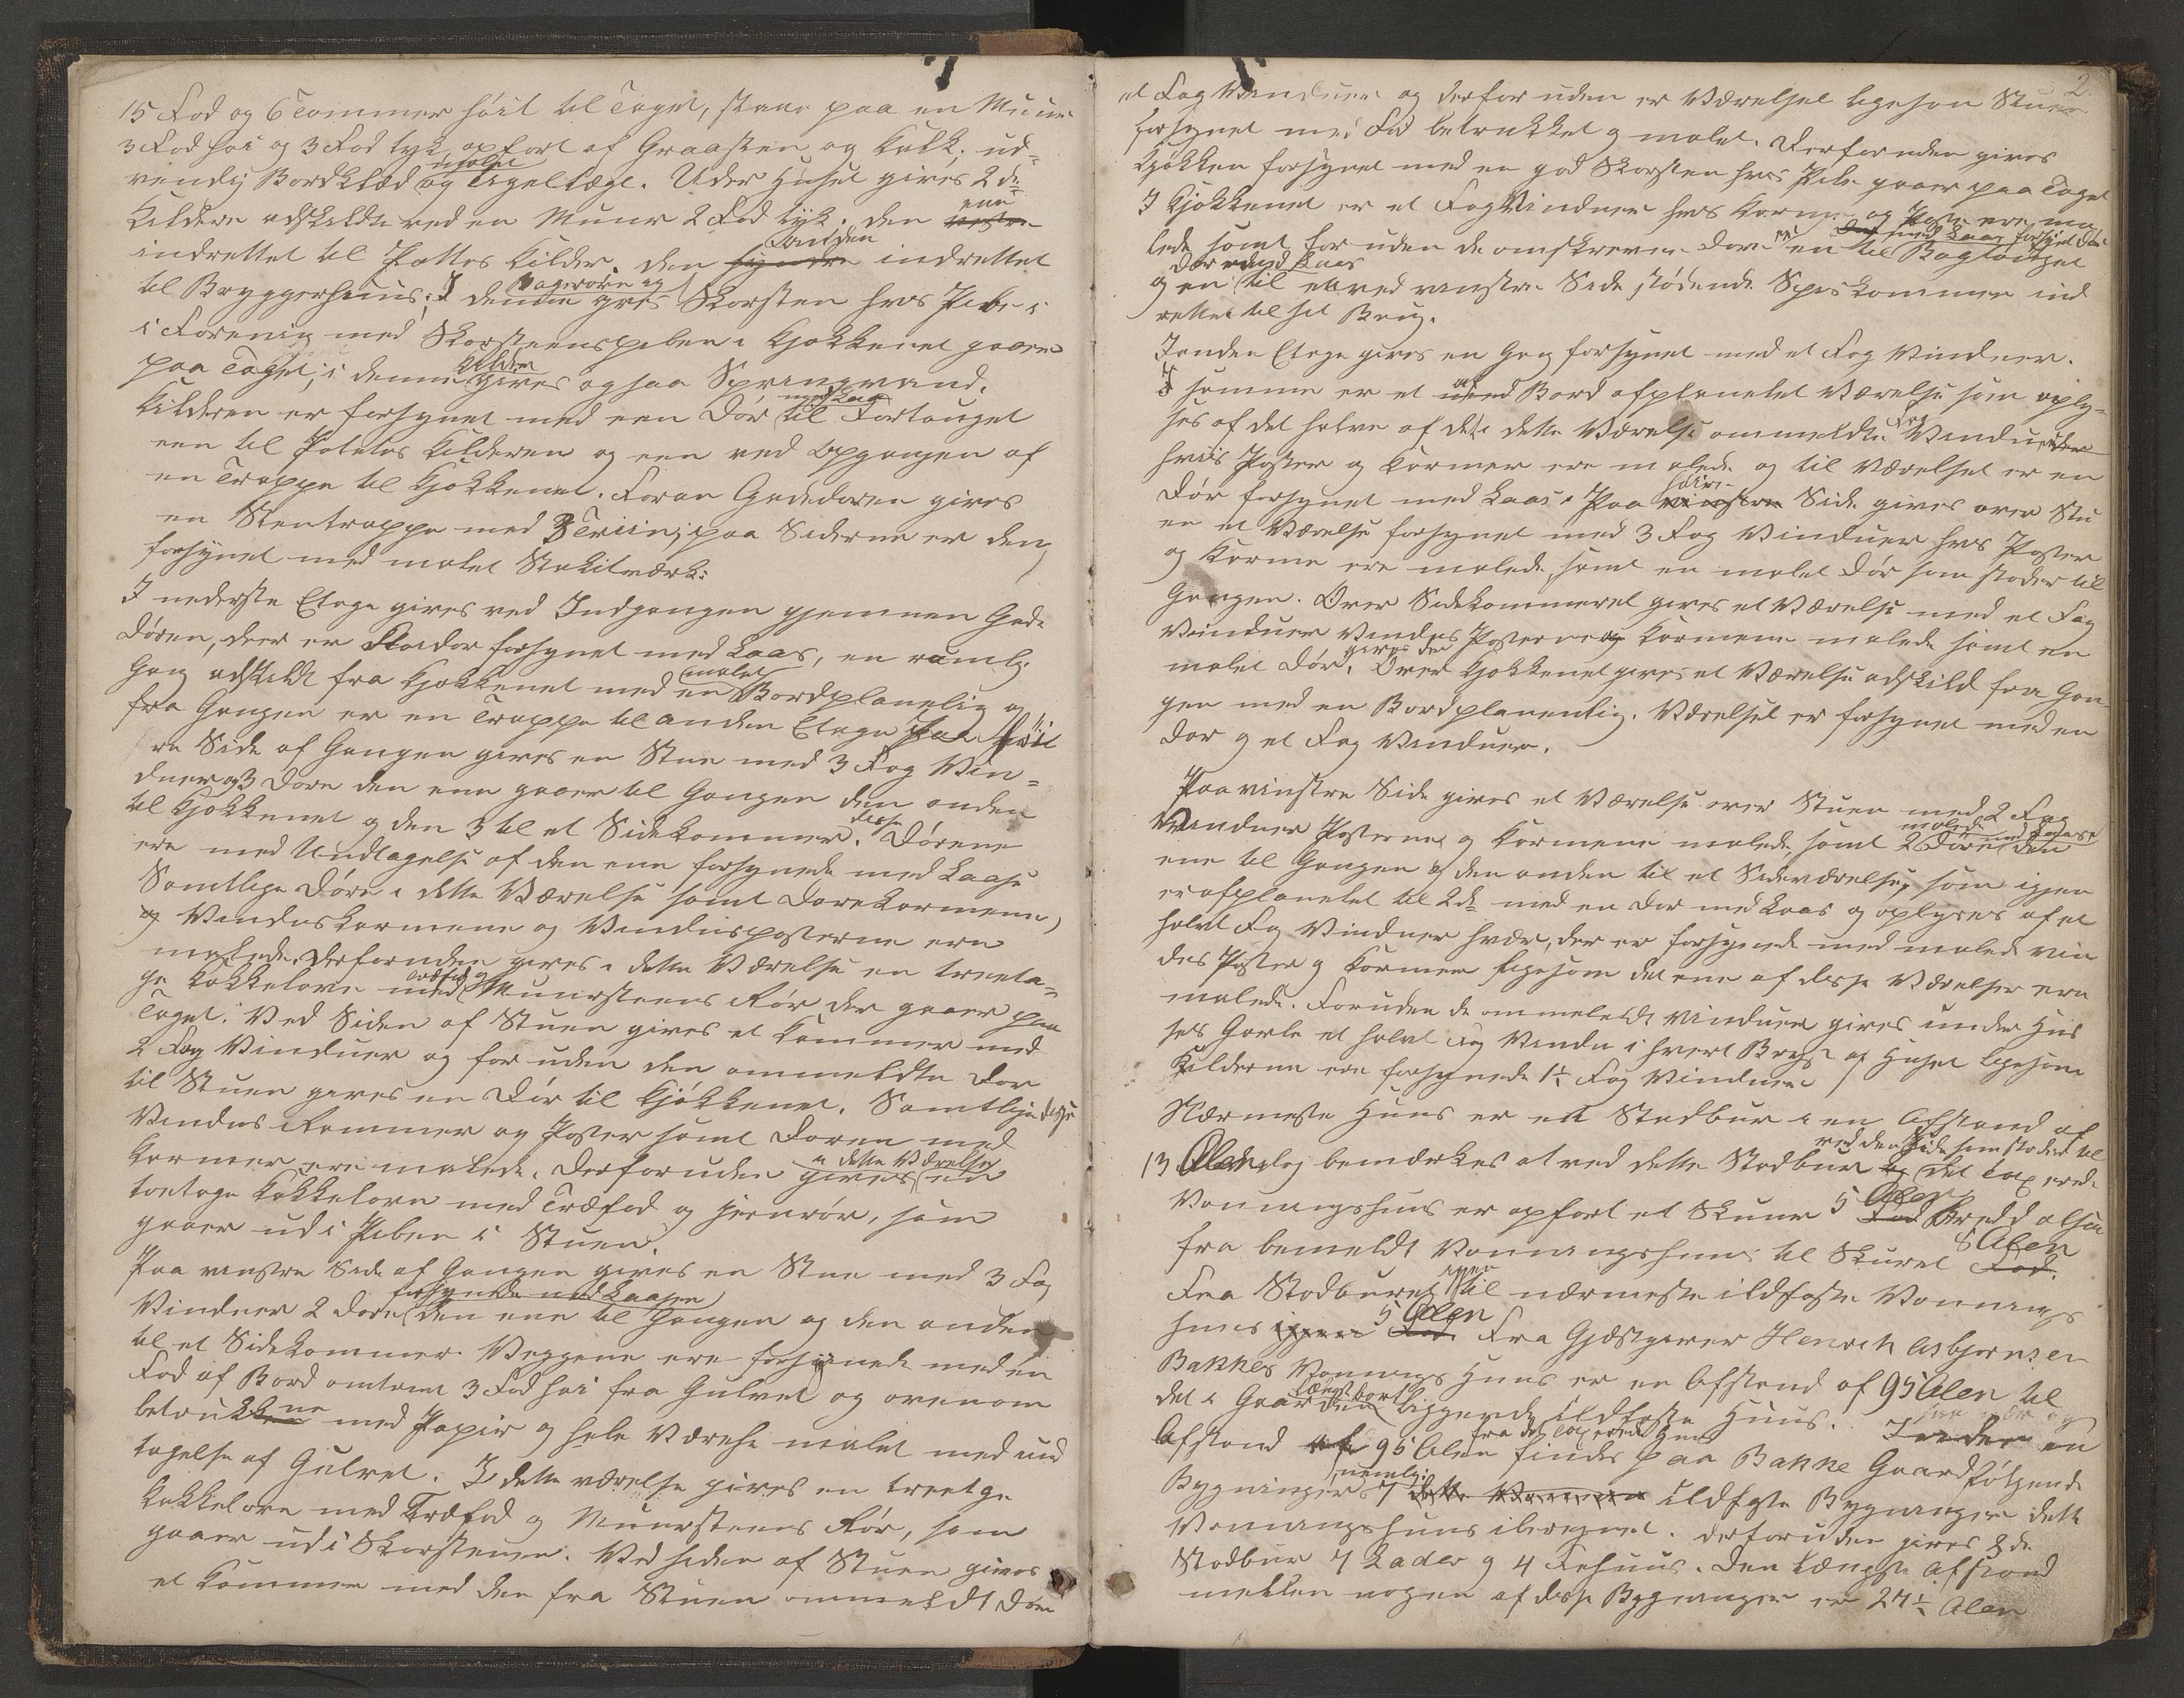 15 Fod og 6 Tommer höit til Taget, staar paa en Muur
3 Fod höi og 3 Fod tyk, opfört af Graasten og Kalk; ud-
vendig Bordklæd og Tegeltægt. Under Huset gives 2de
Kildere adskildte ved en Muur 2 Fod tyk. Den ene
indrettet til Pottes Kilder. Den anden indrettet
til Bryggerhuus; I denne gives Bagerovn og Skorsten hvis Pibe
i Forening med Skorsteenspiben i Kjökkenet gaaer
paa Taget; i denne Kilder gives ogsaa Springvand.
Kilderen er forsynet med een Dör med Laas til Fortouget
een til Potetes Kilderen og een ved Opgangen af
en Trappe til Kjökkenet. Foran Gadedören gives
en Stentrappe med 3 Triin; paa Siderne er den
forsynet med malet Stakitværk.
I nederste Etage gives ved Indgangen gjennem Gade
Dören, der er forsynet med Laas, en rumlig
Gang adskildt fra Kjökkenet med en malet Bordplaneting og
fra Gangen er en Trappe til anden Etage Paa höi
re Side af Gangen gives en Stue med 3 Fag Vin-
duer og 3 Döre den ene gaaer til Gangen den anden
til Kjökkenet og den 3 til et Sidekammer. Disse Dörene
ere med Undtagelse af den ene forsynede med Laase
Samtlige Döre i dette Værelse samt Dörekarmene,
og Vindueskarmene og Vinduesposterne ere
malede. Desforuden gives i dette Værelse en treeta-
ge Kakkelovn med Træfod og Muursteens Rör der gaaer paa
Taget. Ved Siden af Stuen gives et Kammer med
2 Fag Vinduer og for uden den ommeldte Dör
til Stuen gives en Dör til Kjökkenet. Samtlige disse
Vindues Rammer og Poster samt Dören med
Karmer ere malede. Desforuden gives i dette Værelse en
toetage Kakkelovn med Træfod og Jernrör, som
gaaer ud i Piben i Stuen.
Paa venstre Side af Gangen gives en Stue med 3 Fag
Vinduer 2 Döre forsynede med Laase den ene til Gangen og den anden
til et Sidekammer. Veggene ere forsynede med en
Fod af Bord omtrent 3 Fod höi fra Gulvet og ovenom
betrukkene med Papir og hele Værelse malet med und
tagelse af Gulvet. I dette værelse gives en treetage
Kakkelovn med Træfod og Muursteens Rör, som
gaaer ud i Skorstenen. Ved siden af Stuen gives
et Kammer med den fra Stuen ommeldt Dör
2.
et Fag Vinduer og desforuden er Værelset ligesom Stuen
forsynet med Fod betrukket og malet. Desforuden gives
Kjökken forsynet med en god Skorsten hvis Pibe gaaer paa Taget
I Kjökkenet er et Fag Vinduer hvis Karme og Poste ere ma
lede samt for uden de omskrevne Döre en til Bagtouget
og en Dör med Laas til et ved venstre Side stödende Spiskammer ind
rettet til sit Brug.
I anden Etage gives en Gang forsynet med et Fag Vinduer.
I samme er et af Bord afplanetet Værelse som oply-
ses af det halve af det i dette Værelse ommeldte Fag Vinduer
hvis Poster og Karmer ere malede og til Værelset er en
Dör forsynet med Laas. Paa höire Side gives over Stu
en et Værelse forsynet med 3 Fag Vinduer hvis Poster
og Karme ere malede, samt en malet Dör som stöder til
Gangen. Over Sidekammeret gives et Værelse med et Fag
Vinduer Vindues Posterne og Karmene malede samt en
malet Dör. Over Kjökkenet gives et Værelse adskild fra Gan
gen med en Bordplaneting. Værelset er forsynet med en
Dör og et Fag Vinduer.
Paa venstre Side gives et Værelse over Stuen med 2 Fag
Vinduer Posterne og Karmene malede, samt 2 malede Döre med Laase den
ene til Gangen og den anden til et Sideværelse, som igjen
er afplanetet til 2de med en Dör med Laas og oplyses af et
halvt Fag Vinduer hver, der er forsynede med malede vin
dues Poster og Karmer ligesom det ene af disse Værelser ere
malede. Foruden de ommeldte Vinduer gives under Hus
sets Gavle et halvt Fag Vindu i hvert Bryst af Huset ligesom
Kilderne ere forsynede 1½ Fag Vinduer
Nærmeste Huus er et Stadbur i en Afstand af
13 Alen, og bemærkes at ved dette Stadbur ved den Side som stöder til det taxerede
Vaaningshuus er opfört et Skuur 5 Alen Bredd altsaa
fra bemeldt Vaaningshuus til Skuret 8 Alen
Fra Stadburet igjen til nærmeste ildfaste Vaanings
huus 5 Alen Fra Gjæstgiver Henrich Asbjörnsen
Bakkes Vaanings Huus er en Afstand af 95 Alen til
det i Gaarden længst bort liggende ildfaste Huus. I en
Afstand af 95 Alen fra det taxerede Huus findes paa Bakke Gaard fölgende
Bygninger nemlig: 7 ildfaste Bygninger dette
Vaaningshuus iberegnet. Desforuden gives 2de
Stadbur 7 Lader og 4 Fæhuus. Den længste Afstand
mellem nogen af disse Bygninger er 27½ Alen